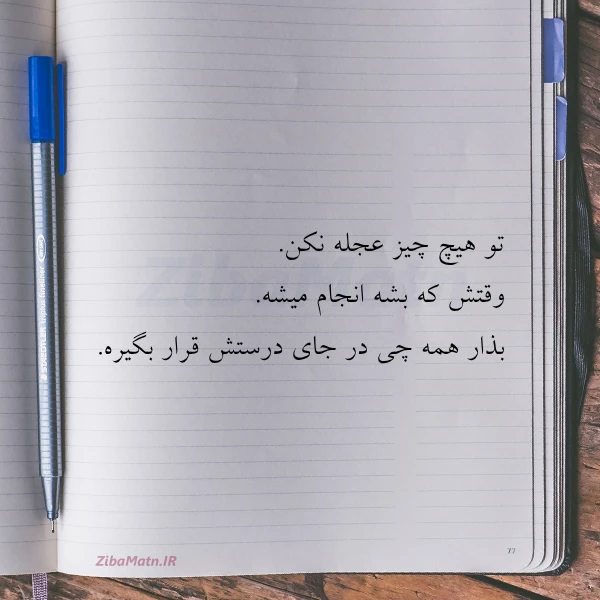 تو هیچ چیز عجله نکن.
وقتش که بشه انجام میشه.
بذار همه چی در جای درستش قرار بگیره.
ZibaMatn.IR